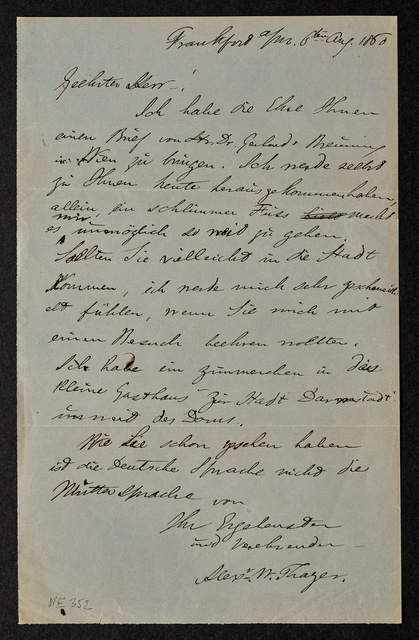 Frankford a/m. 6ten Aug. 1860
Geehrter Herr!
Ich habe die Ehre Ihnen
einen Brief von Hr. Dr. Gerhard v Breuning
in Wien zu bringen. Ich werde selbst
zu Ihnen heute herausgekommen haben,
allein, ein schlimmer Fuss macht
es mir unmöglich so weit zu gehen
Sollten Sie vielleicht in die Stadt
kommen, ich werde mich sehr geschmeich-
elt fühlen, wenn Sie mich mit
einen Besuch beehren wollten.
Ich habe ein zimmerchen in das
kleine Gasthaus "Zur Stadt Darmstadt"
unweit des Doms.
Wie Sie schon gesehen haben
ist die Deutsche Sprache nicht die
Mutter Sprache von
Ihr Ergebenster
und Verehrender
Alexr. W. Thayer.
NE 352